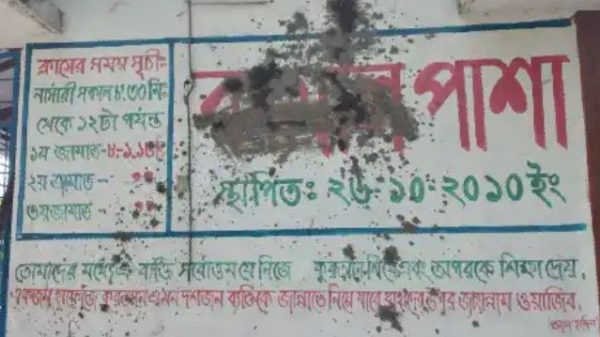 ক্লাসের সময় সূচী:
নার্সারী সকাল ৮.৩০ মি:
থেকে ১২টা পর্যন্ত
১ম জামাত-৮-১.১৫
২য় জামাত --
৩য় জামাত -
পাশা
স্থাপিত: ২৬-১০-২০১০ ইং
তোমাদের মধ্যে ঐ ব্যক্তি সর্বোত্তম যে নিজে কুরআন শিখে এবং অপরকে শিক্ষা দেয়,
একজন হাফেজে কুরআন এমন দশজন ব্যক্তিকে জান্নাতে নিয়ে যাবে যাহাদের উপর জাহান্নাম ওয়াজিব,